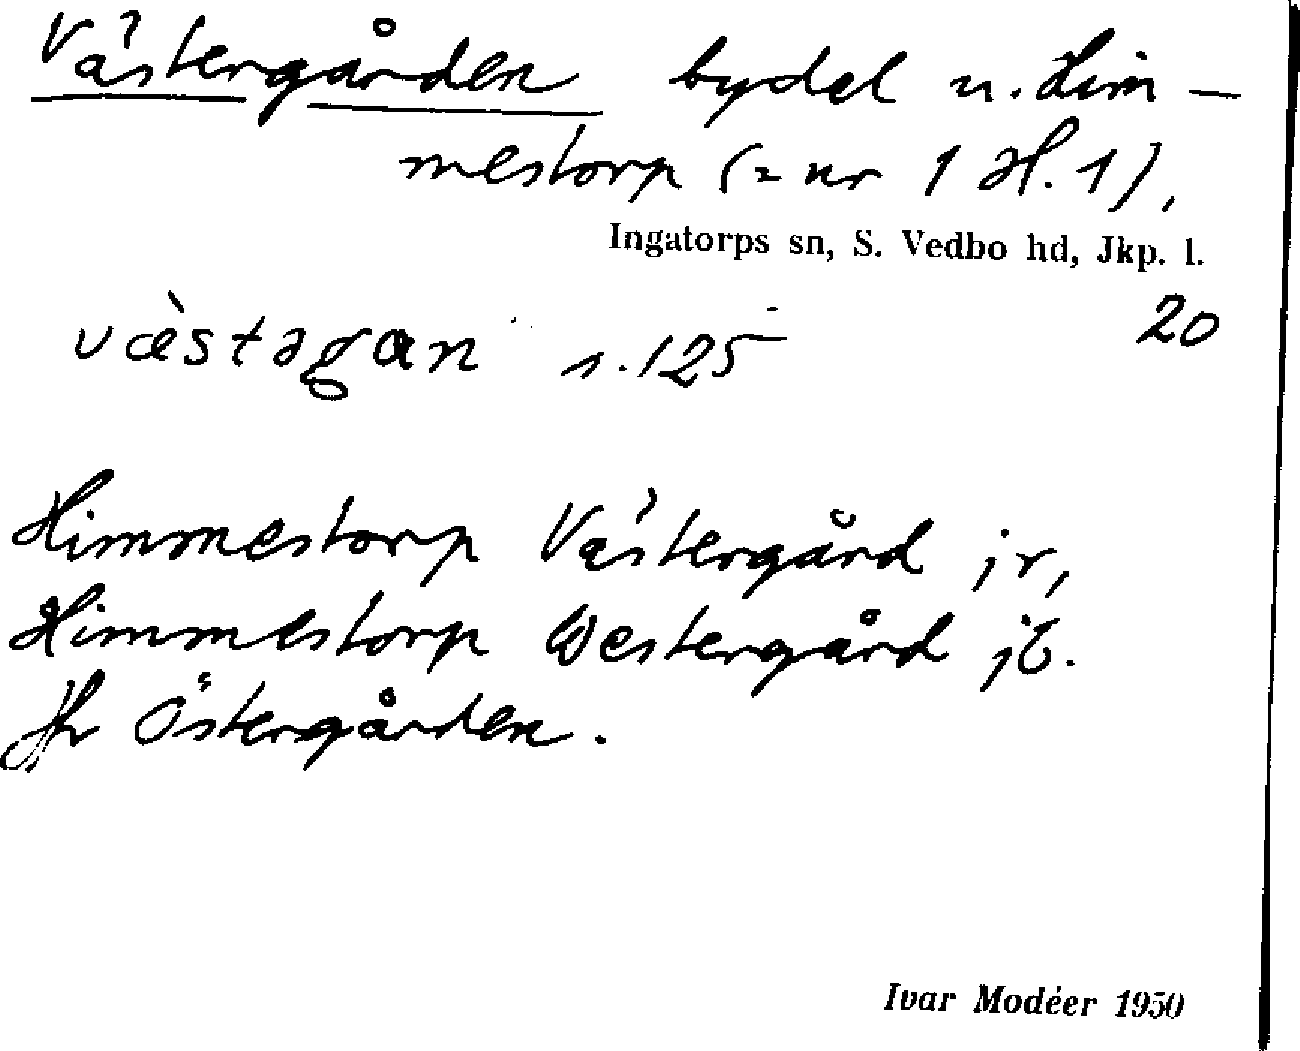 Västergården bydel u. Him–
mestorp (= nr 1 H. 1),
Ingatorps sn, S. Vedbo hd, Jkp. l.
væ̀stəgan s. 125 20
Himmestorp Västergård jr,
Himmestorp Westergård jb.
Jfr Östergården.
Ivar Modéer 1950